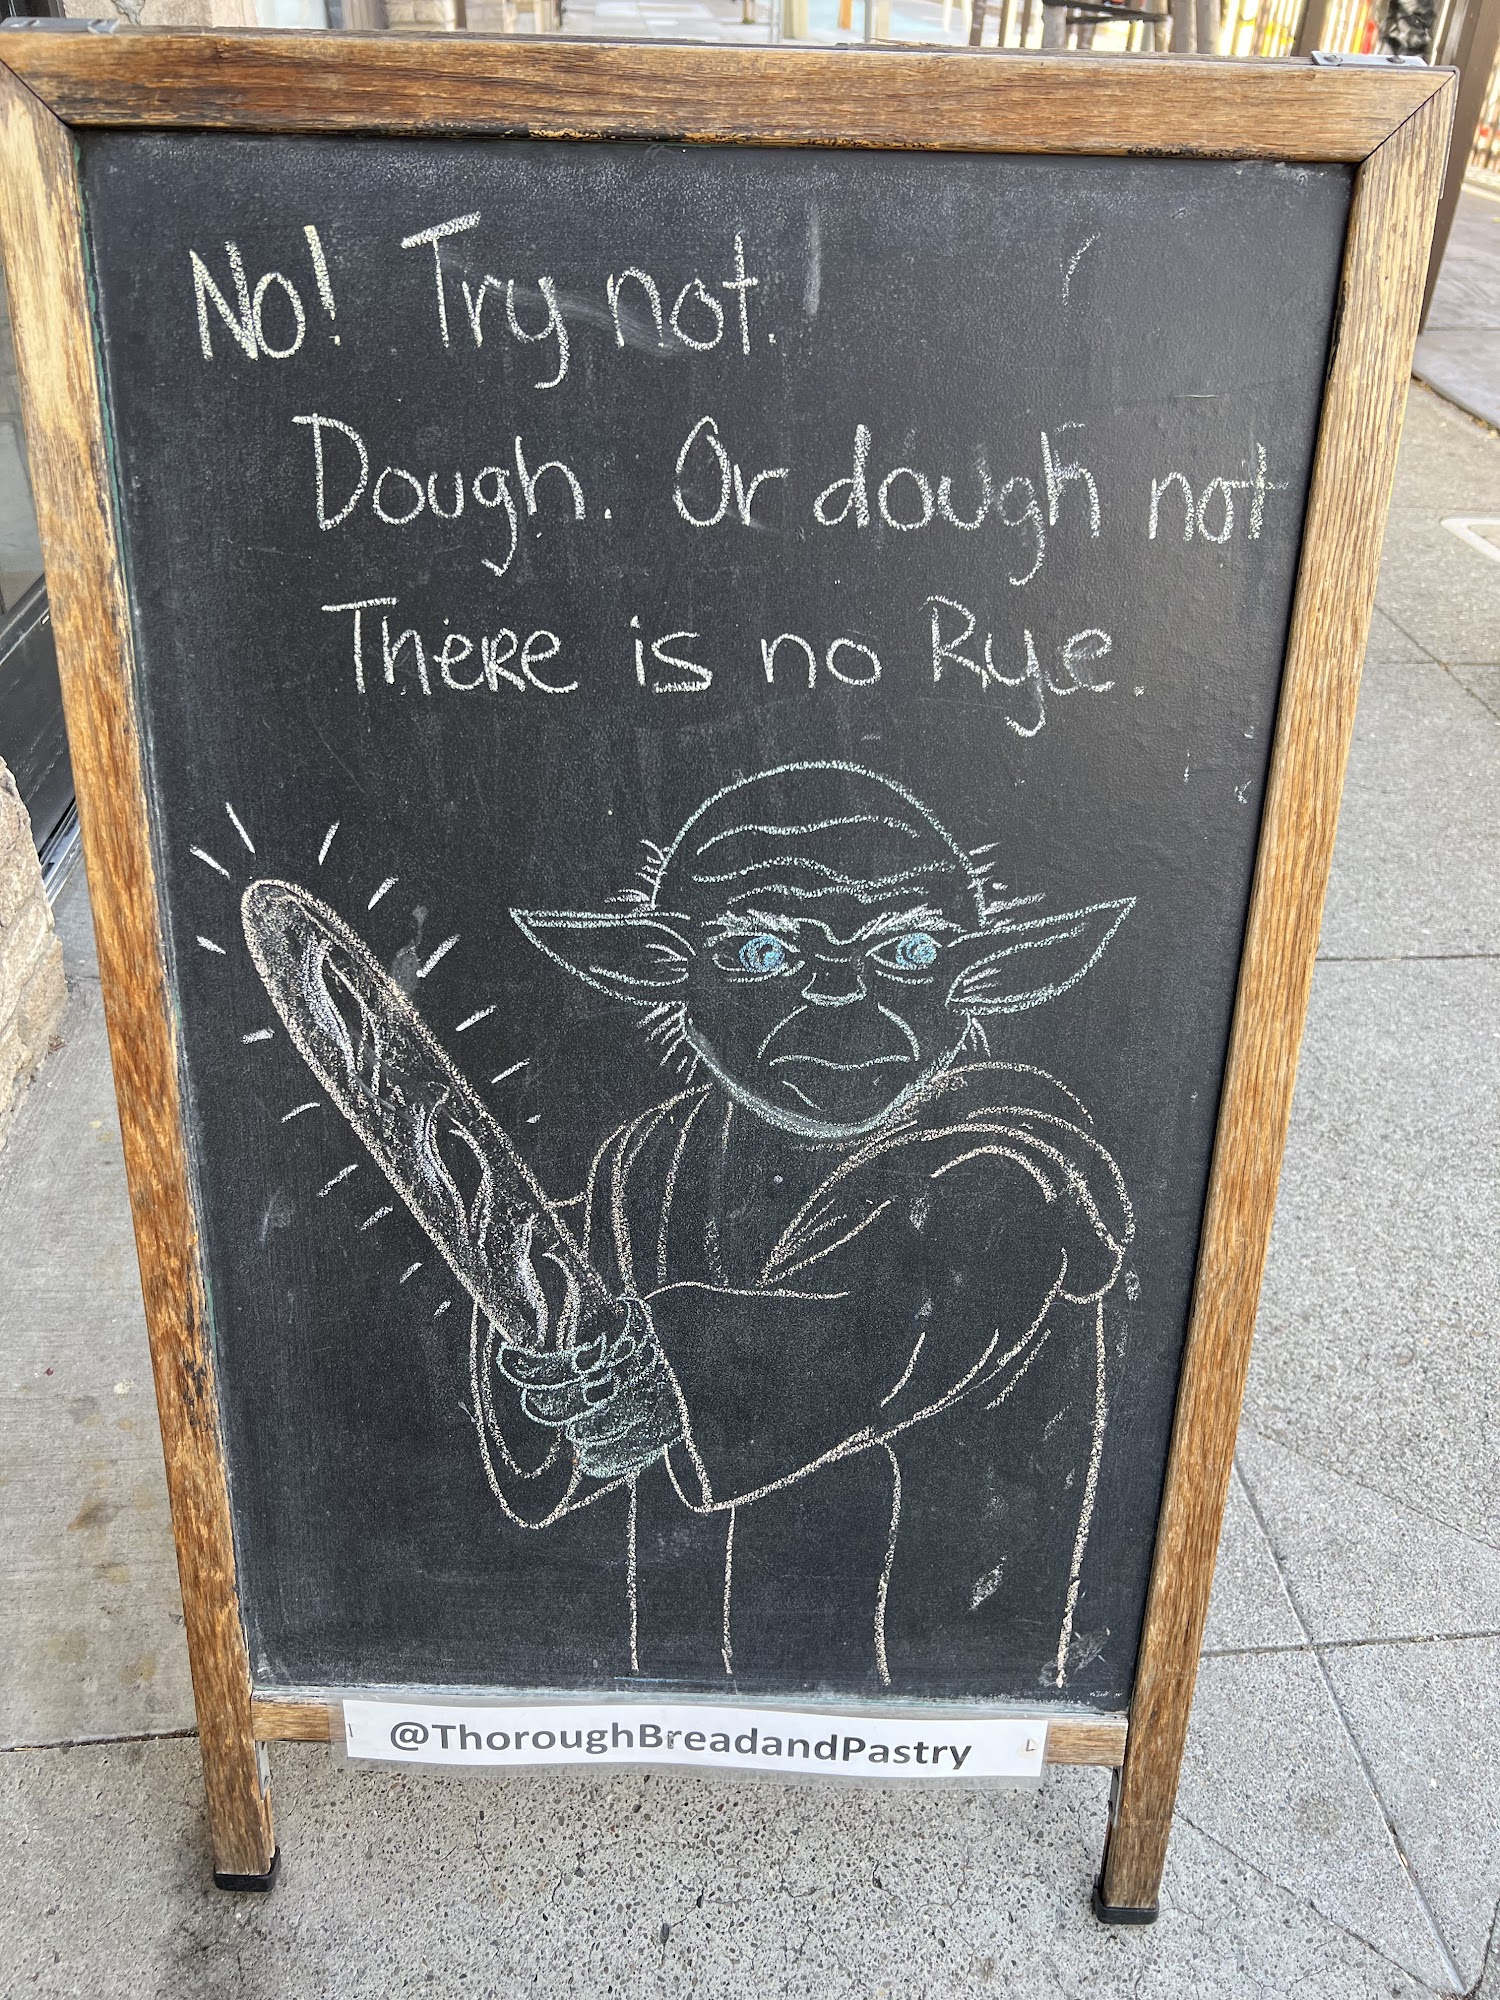 No! Try not.
Dough. Or dough not
There is no Rye.
@ThoroughBreadandPastry